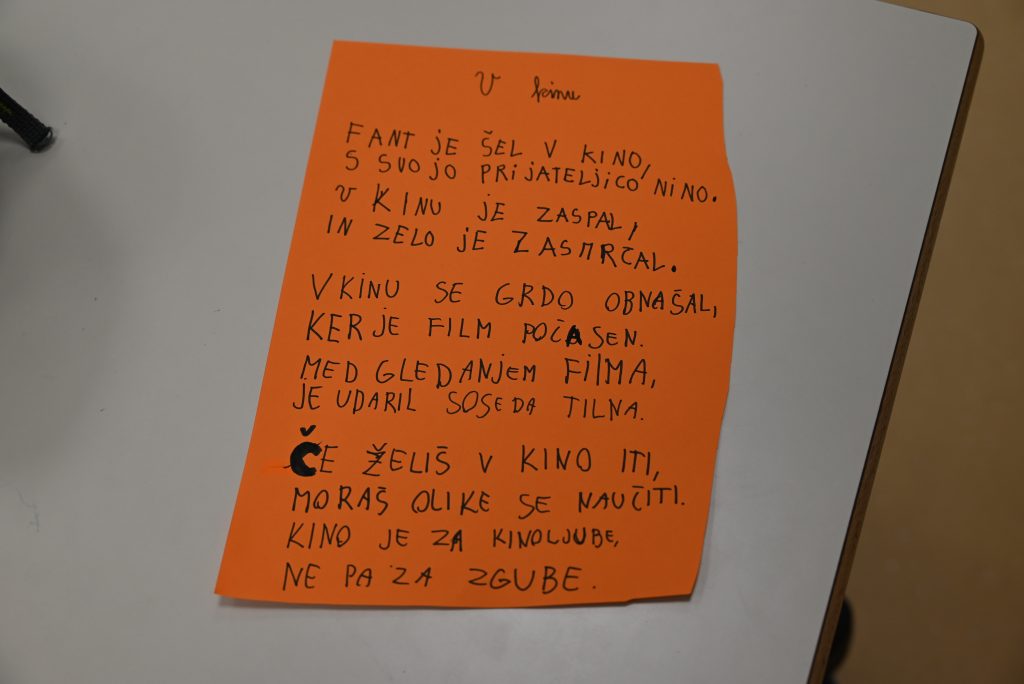 V kinu
FANT JE ŠEL V KINO,
S SVOJO PRIJATELJICO NINO.
V KINU JE ZASPAL,
IN ZELO JE ZASMRČAL.
V KINU SE GRDO OBNAŠAL,
KER JE FILM POČASEN.
MED GLEDANJEM FILMA,
JE UDARIL SOSEDA TILNA.
ČE ŽELIŠ V KINO ITI,
MORAŠ OLIKE SE NAUČITI.
KINO JE ZA KINOLJUBE,
NE PA ZA ZGUBE.